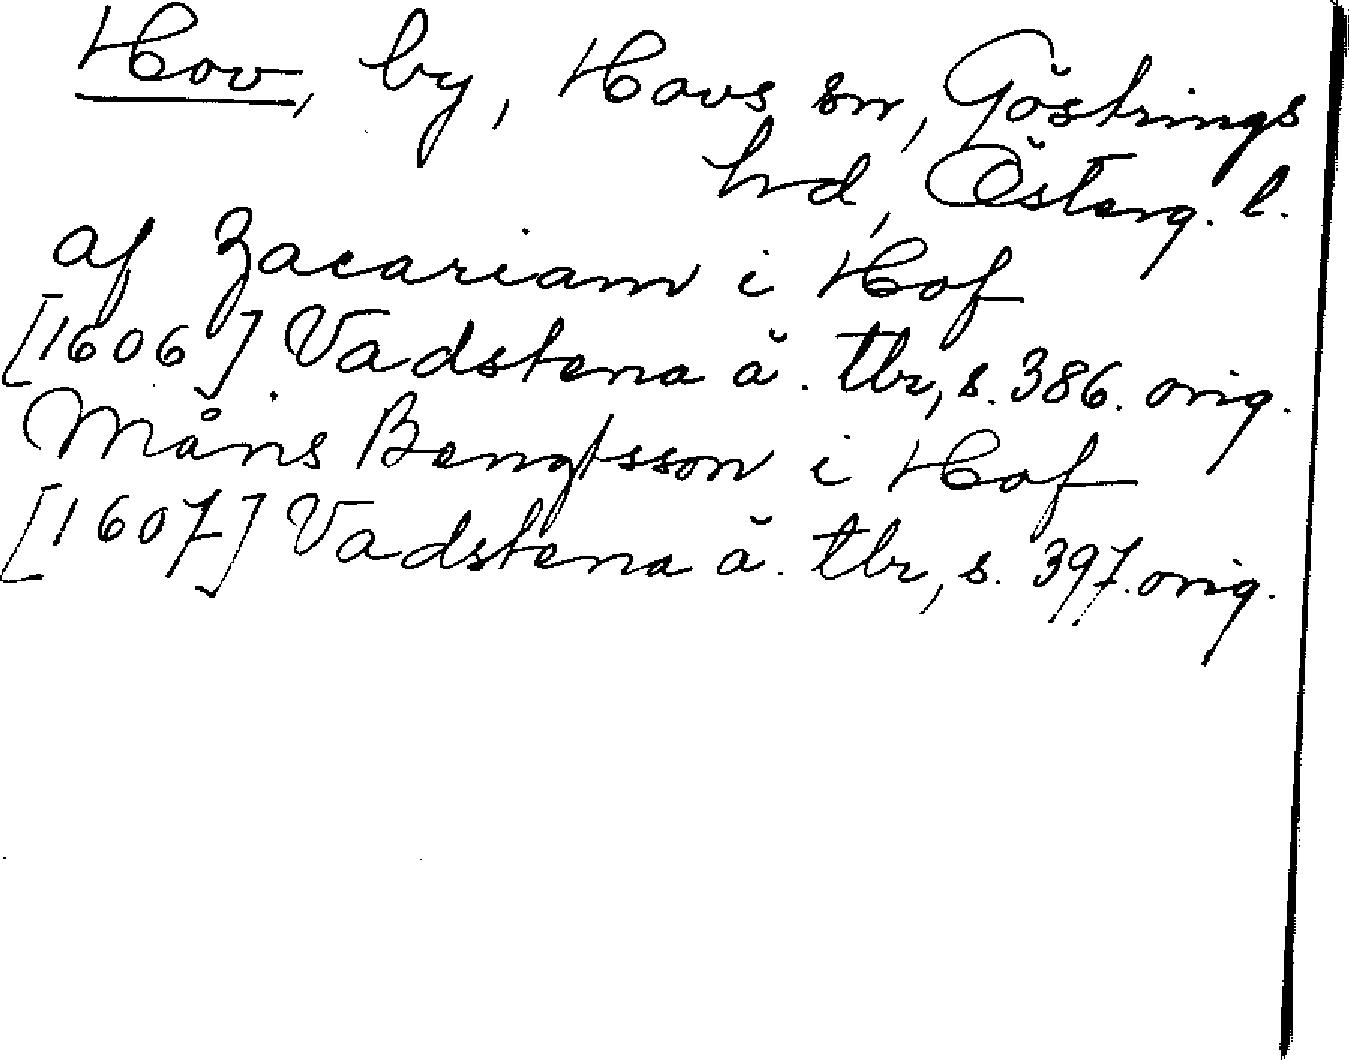 Hov, by, Hovs sn, Göstrings
hd, Österg. l.
af Zacariam i Hof
[1606] Vadstena ä. tbr, s. 386. orig.
Måns Bengtsson i Hof
[1607] Vadstena ä. tbr, s. 397. orig.